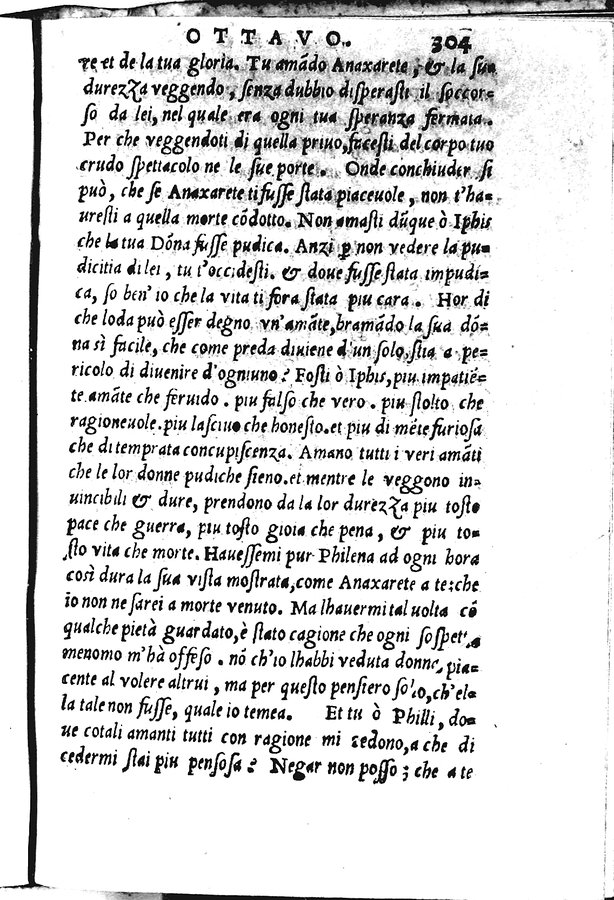 OTTAVO. 304
re et de la tua gloria. Tu amãdo Anaxarete, & la sua
durezza veggendo, senza dubbio disperasti il soccor=
so da lei, nel quale era ogni tua speranza fermata.
Per che veggendoti di quella priuo, facesti del corpo tuo
crudo spettacolo ne le sue porte. Onde conchiuder si
può, che se Anaxarete ti fusse stata piaceuole, non t'ha=
uresti a quella morte cõdotto. Non amasti dũque ò Iphis
che la tua Dõna fusse pudica. Anzi ꝑ non vedere la pu=
dicitia di lei, tu t'occidesti. & doue fusse stata impudi=
ca, so ben' io che la vita ti fora stata piu cara. Hor di
che loda può esser degno vn'amãte, bramãdo la sua dõ=
na sì facile, che come preda diuiene d'un solo, stia a pe=
ricolo di diuenire d'ogniuno? Fosti ò Iphis, piu impatiẽ=
te amãte che feruido. piu falso che vero. piu stolto che
ragioneuole. piu lasciuo che honesto. et piu di mẽte furiosa
che di temprata concupiscenza. Amano tutti i veri amãti
che le lor donne pudiche sieno. et mentre le veggono in=
uincibili & dure, prendono da la lor durezza piu tosto
pace che guerra, piu tosto gioia che pena, & piu to=
sto vita che morte. Hauessemi pur Philena ad ogni hora
così dura la sua vista mostrata, come Anaxarete a te: che
io non ne sarei a morte venuto. Ma lhauermi tal uolta cõ
qualche pietà guardato, è stato cagione che ogni sospetto
menomo m'hà offeso. nõ ch'io lhabbi veduta donna pia=
cente al volere altrui, ma per questo pensiero solo, ch'el=
la tale non fusse, quale io temea. Et tu ò Philli, do=
ue cotali amanti tutti con ragione mi cedono, a che di
cedermi stai piu pensosa? Negar non posso; che a te